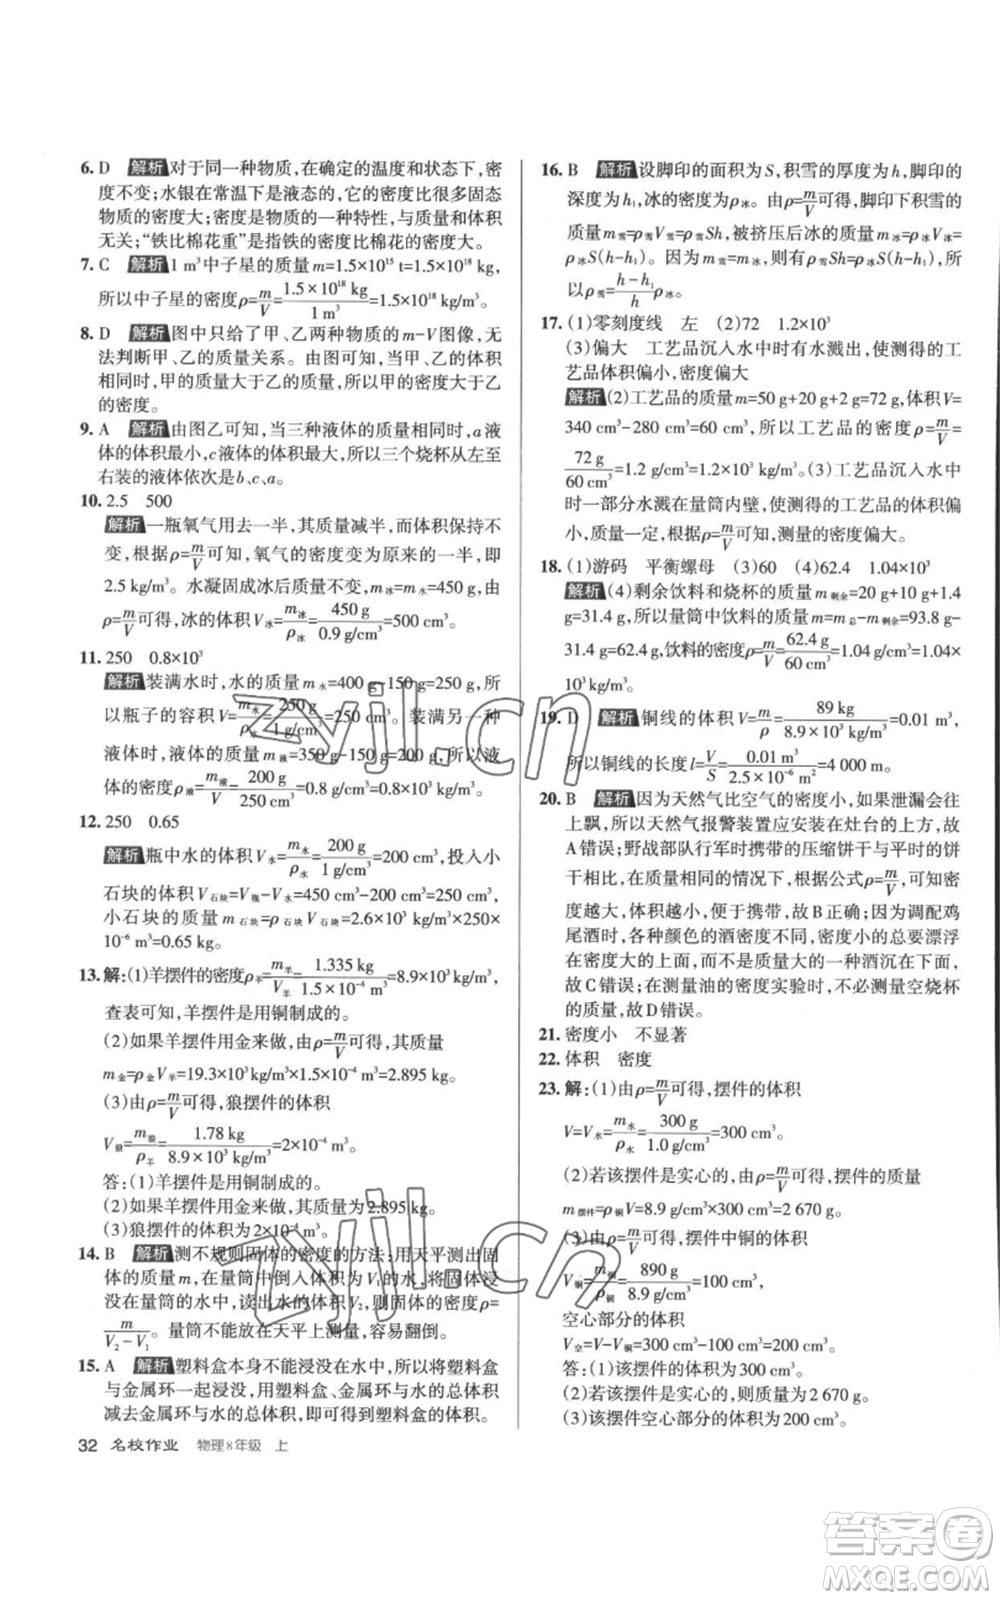 6. D 解析 对于同一种物质,在确定的温度和状态下,密
度不变;水银在常温下是液态的,它的密度比很多固态
物质的密度大;密度是物质的一种特性,与质量和体积
无关;“铁比棉花重”是指铁的密度比棉花的密度大。
7. C 解析 1 m³中子星的质量 m=1.5×10¹⁵ t=1.5×10¹⁸ kg,
所以中子星的密度ρ=m/V=1.5×10¹⁸ kg/1 m³=1.5×10¹⁸ kg/m³。
8. D 解析 图中只给了甲、乙两种物质的 m-V 图像,无
法判断甲、乙的质量关系。由图可知,当甲、乙的体积
相同时,甲的质量大于乙的质量,所以甲的密度大于乙
的密度。
9. A 解析 由图乙可知,当三种液体的质量相同时,a 液
体的体积最小,c 液体的体积最大,所以三个烧杯从左至
右装的液体依次是 b、c、a。
10. 2.5 500
解析 一瓶氧气用去一半,其质量减半,而体积保持不
变,根据ρ=m/V可知,氧气的密度变为原来的一半,即
2.5 kg/m³。水凝固成冰后质量不变,m冰=m水=450 g,由
ρ=m/V可得,冰的体积 V冰=m冰/ρ冰=450 g/0.9 g/cm³=500 cm³。
11. 250 0.8×10³
解析 装满水时,水的质量 m水=400 g-150 g=250 g,所
以瓶子的容积 V=m水/ρ水=250 g/1 g/cm³=250 cm³。装满另一种
液体时,液体的质量 m液=350 g-150 g=200 g,所以液
体的密度=m液/V=200 g/250 cm³=0.8 g/cm³=0.8×10³ kg/m³。
12. 250 0.65
解析 瓶中水的体积 V水=m水/ρ水=200 g/1 g/cm³=200 cm³,投入小
石块的体积 V石块=V总-V水=450 cm³-200 cm³=250 cm³,
小石块的质量 m石块=ρ石块V石块=2.6×10³ kg/m³×250×
10⁻⁶ m³=0.65 kg。
13. 解:(1)羊摆件的密度ρ羊=m羊/V羊=1.335 kg/1.5×10⁻⁴ m³=8.9×10³ kg/m³,
查表可知,羊摆件是用铜制成的。
(2)如果羊摆件用金来做,由ρ=m/V可得,其质量
m金=ρ金V羊=19.3×10³ kg/m³×1.5×10⁻⁴ m³=2.895 kg。
(3)由ρ=m/V可得,狼摆件的体积
V狼=m狼/ρ羊=1.78 kg/8.9×10³ kg/m³=2×10⁻⁴ m³。
答:(1)羊摆件是用铜制成的。
(2)如果羊摆件用金来做,其质量为2.895 kg。
(3)狼摆件的体积为2×10⁻⁴ m³。
14. B 解析 测不规则固体的密度的方法:用天平测出固
体的质量 m,在量筒中倒入体积为 V₁的水,将固体浸
没在量筒的水中,读出水的体积 V₂,则固体的密度ρ=
m/V₂-V₁。量筒不能放在天平上测量,容易翻倒。
15. A 解析 塑料盒本身不能浸没在水中,所以将塑料盒
与金属环一起浸没,用塑料盒、金属环与水的总体积
减去金属环与水的总体积,即可得到塑料盒的体积。
32 名校作业 物理8年级 上
16. B 解析 设脚印的面积为 S,积雪的厚度为 h,脚印的
深度为 h₁,冰的密度为ρ冰。由ρ=m/V可得,脚印下积雪的
质量 m雪=ρ雪V雪=ρ雪Sh,被挤压后冰的质量 m冰=ρ冰V冰=
ρ冰S(h-h₁)。因为 m雪=m冰,则有ρ雪Sh=ρ冰S(h-h₁),所
以ρ雪=h-h₁/hρ冰。
17. (1)零刻度线 左 (2)72 1.2×10³
(3)偏大 工艺品沉入水中时有水溅出,使测得的工
艺品体积偏小,密度偏大
解析 (2)工艺品的质量 m=50 g+20 g+2 g=72 g,体积 V=
340 cm³-280 cm³=60 cm³,所以工艺品的密度ρ=m/V=
72 g/60 cm³=1.2 g/cm³=1.2×10³ kg/m³。(3)工艺品沉入水中
时一部分水溅在量筒内壁,使测得的工艺品的体积偏
小,质量一定,根据ρ=m/V可知,测量的密度偏大。
18. (1)游码 平衡螺母 (3)60 (4)62.4 1.04×10³
解析 (4)剩余饮料和烧杯的质量=20 g+10 g+1.4
g=31.4 g,所以量筒中饮料的质量 m=m总-m剩余=93.8 g-
31.4 g=62.4 g,饮料的密度ρ=m/V=62.4 g/60 cm³=1.04 g/cm³=1.04×
10³ kg/m³。
19. D 解析 铜线的体积 V=m/ρ=89 kg/8.9×10³ kg/m³=0.01 m³,
所以铜线的长度 l=V/S=0.01 m³/2.5×10⁻⁶ m²=4 000 m。
20. B 解析 因为天然气比空气的密度小,如果泄漏会往
上飘,所以天然气报警装置应安装在灶台的上方,故
A错误;野战部队行军时携带的压缩饼干与平时的饼
干相比,在质量相同的情况下,根据公式ρ=m/V,可知密
度越大,体积越小,便于携带,故B正确;因为调配鸡
尾酒时,各种颜色的酒密度不同,密度小的总要漂浮
在密度大的上面,而不是质量大的一种酒沉在下面,
故C错误;在测量油的密度实验时,不必测量空烧杯
的质量,故D错误。
21. 密度小 不显著
22. 体积 密度
23. 解:(1)由ρ=m/V可得,摆件的体积
V=V水=m水/ρ水=300 g/1.0 g/cm³=300 cm³。
(2)若该摆件是实心的,由ρ=m/V可得,摆件的质量
m摆件=ρ铜V=8.9 g/cm³×300 cm³=2 670 g。
(3)由ρ=m/V可得,摆件中铜的体积
V铜=m铜/ρ铜=890 g/8.9 g/cm³=100 cm³,
空心部分的体积
V空=V-V铜=300 cm³-100 cm³=200 cm³。
答:(1)该摆件的体积为300 cm³。
(2)若该摆件是实心的,则质量为2 670 g。
(3)该摆件空心部分的体积为200 cm³。
zyjl.cn
zyjl.cn
答案圈
MXQE.COM